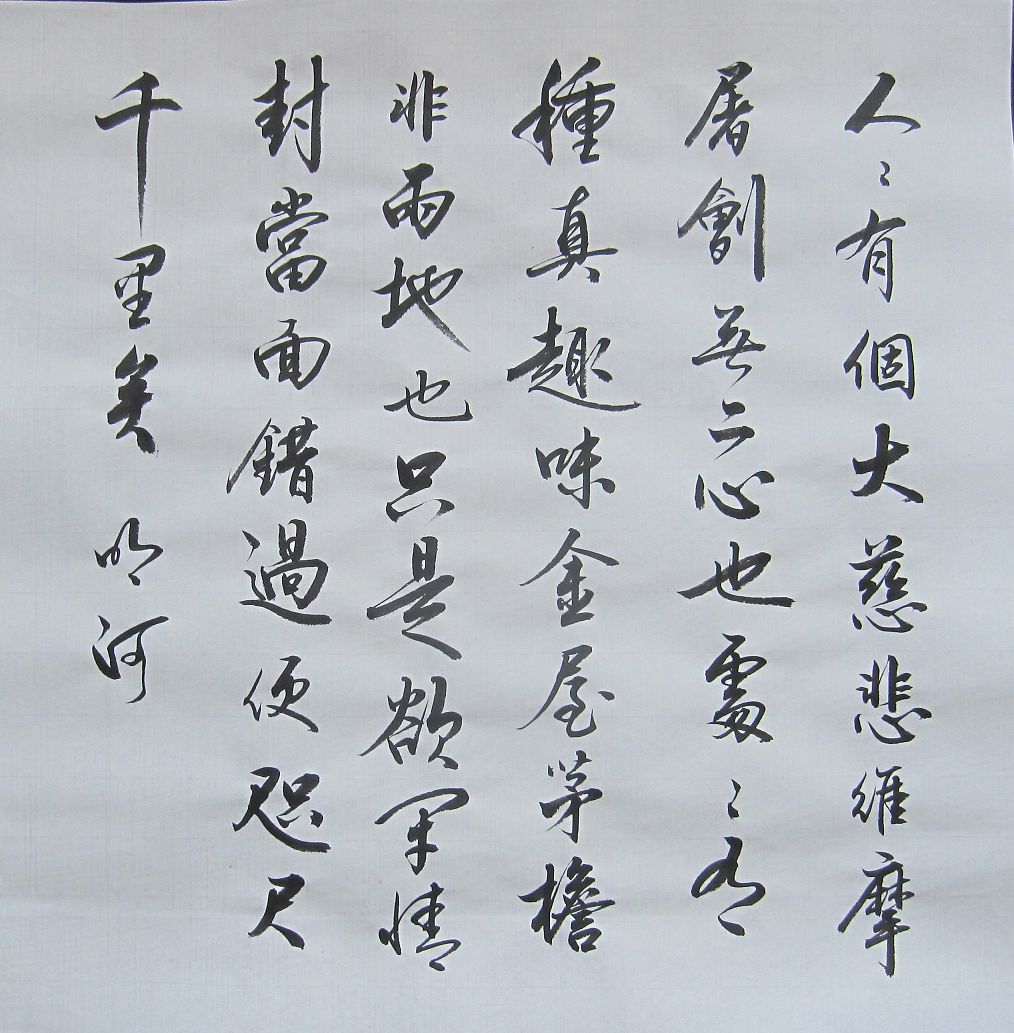 人〻有個大慈悲維摩
屠劊無二心也處〻有
種真趣味金屋茅檐
非兩地也只是欲閉情
封當面錯過便咫尺
千里矣 明河